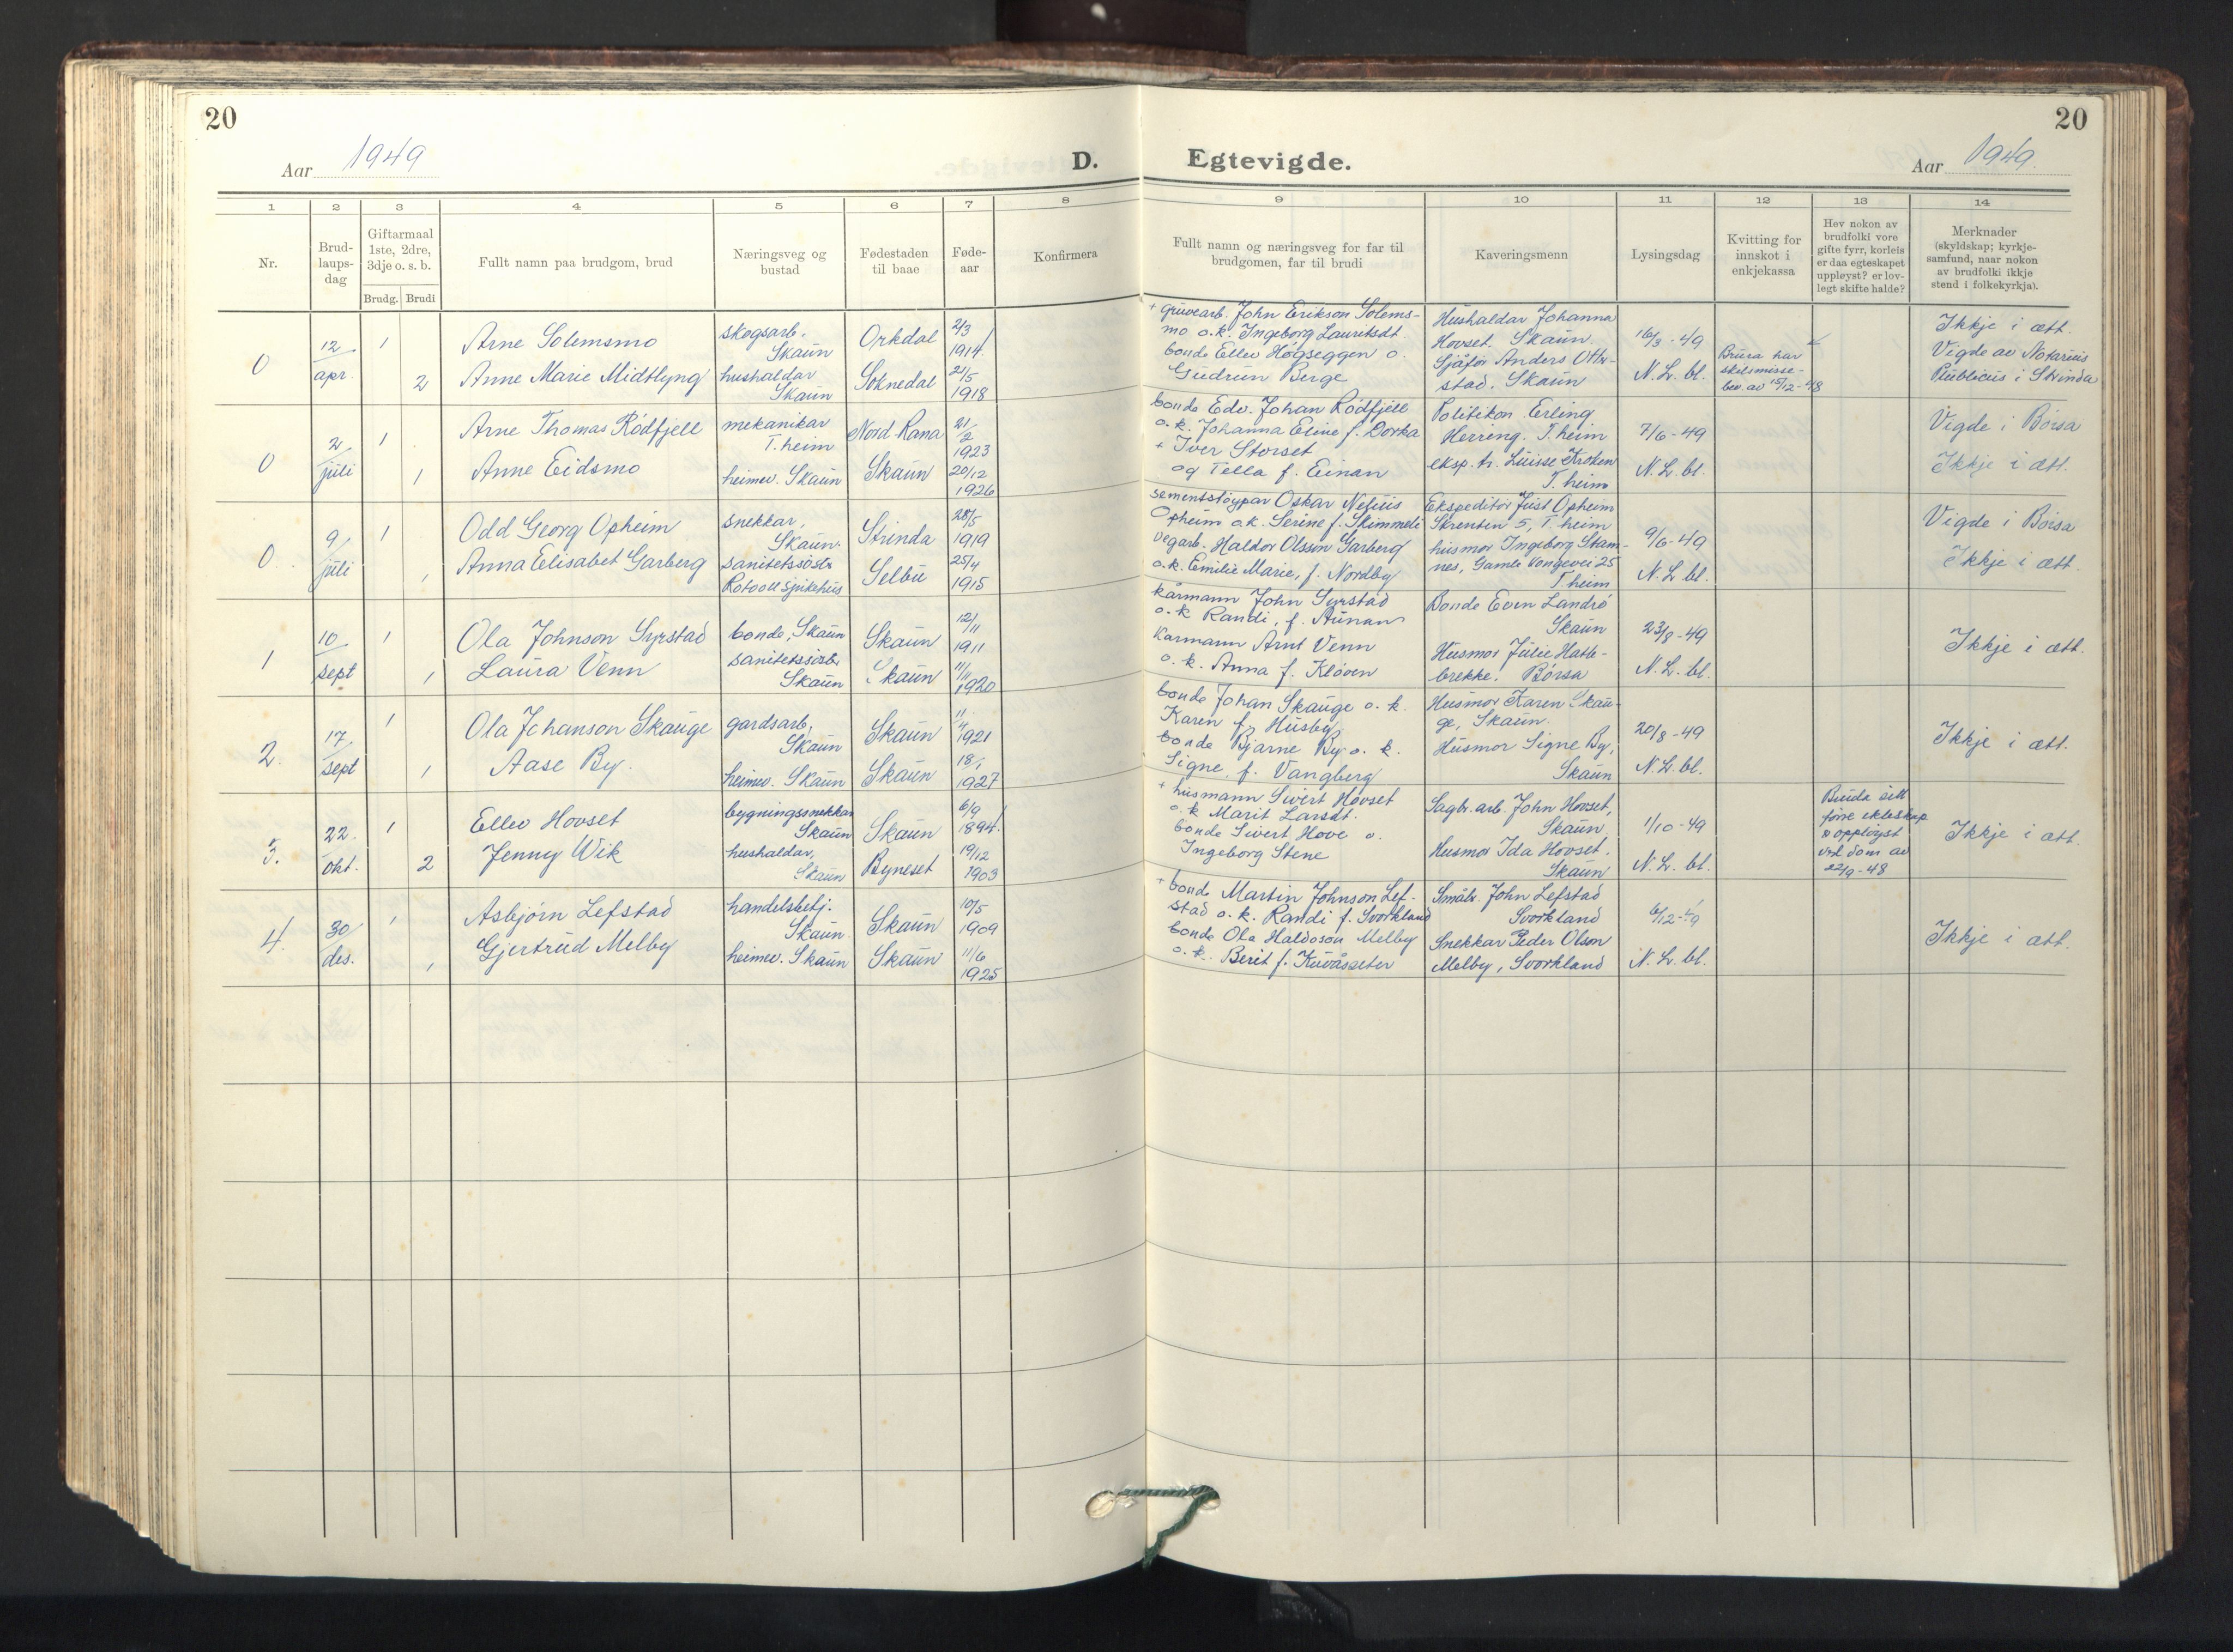 20
Aar 1949
D.
Egtevigde.
Aar 1949.
20
1 2 3 4 5 6 7 8 9 10 11 12 13 14
Nr.
Brud-
laups-
dag
Giftarmaal
1ste, 2dre,
3dje o. s. b.
Brudg. Brudi
Fullt namn paa brudgom, brud
Næringsveg og
bustad
Fødestaden
til baae
Føde-
aar
Konfirmera
Fullt namn og næringsveg for far til
brudgomen, far til brudi
Kaveringsmenn
Lysingsdag
Kvitting for
innskot i
enkjekassa
Hev nokon av
brudfolki vore
gifte fyrr, korleis
er daa egteskapet
uppløyst? er lov-
legt skifte halde?
Merknader
(skyldskap; kyrkje-
samfund, naar nokon
av brudfolki ikkje
stend i folkekyrkja).
0
12/apr.
1
2
Arne Solemsmo
Anne Marie Midtlyng
skogsarb.
Skaun
hushaldar
Skaun
Orkdal
Soknedal
2/3
1914.
21/5
1918
+ gruvearb. John Erikson Solems-
mo o.k. Ingeborg Lauritsdt.
bonde Ellev Høgseggen o.
Gudrun Berge
Hushaldar Johanna
Hovset. Skaun.
Sjåfør Anders Otter-
stad. Skaun
16/3-49
N. L. bl.
Brura har
skilsmisse-
bev. av 15/12-48
Ikkje i ætt.
Vigde av Notarius
Publicus i Strinda
0
2/juli
1
1
Arne Thomas Rödfjell
Anne Eidsmo
mekanikar
T.heim
heimev. Skaun
Nord-Rana
Skaun
21/2
1923
20/12
1926
bonde Edv. Johan Rödfjell
o.k. Johanna Eline f. Dorka
+ Iver Storset
og Tella f. Einan
Politikon. Erling
Herreng. T.heim
eksp. tr. Luisse Kroken
T.heim
7/6-49
N. L. bl.
Vigde i Börsa
Ikkje i ætt.
0.
9/juli
1
1
Odd Georg Opheim
Anna Elisabet Garberg
snekkar,
Skaun.
sanitetssöster
Rotvoll sjukehus
Strinda
Selbu
28/5
1919
25/4
1915
sementsstöypar Oskar Nelius
Opheim o.k. Serine f. Skimmeli
vegarb. Haldor Olsson Garberg
o.k. Emilie Marie, f. Nordby
Ekspeditör Just Opheim
Skrenten 5, T.heim
husmor Ingeborg Stam-
nes, Gamle Kongevei 25
T.heim
9/6-49
N. L. bl.
Vigde i Börsa
Ikkje i ætt.
1
10/sept
1
1
Ola Johnson Syrstad
Laura Venn
bonde, Skaun
sanitetssöster
Skaun
Skaun
Skaun
12/11
1911
11/11
1920
kårmann John Syrstad
o.k Randi, f. Aunan
Karmann Arnt Venn
o.k. Anna f. Klöven
Bonde Even Landrö
Skaun
Husmor Julie Hatle-
brekke. Börsa
23/8-49
N. L. bl.
Ikkje i ætt.
2.
17/sept
1
1
Ola Johanson Skauge
Aase By.
gardsarb.
Skaun
heimev. Skaun
Skaun
Skaun
11/4
1921
18/1
1927
bonde Johan Skauge o. k.
Karen f. Husby
bonde Bjarne By o. k.
Signe, f. Vangberg
Husmor Karen Skau-
ge, Skaun.
Husmor Signe By,
Skaun
20/8-49
N. L. bl.
Ikkje i ætt.
3.
22./okt.
1
2
Ellev Hovset
Jenny Wik
bygningssnekkar
Skaun
hushaldar,
Skaun
Skaun
Byneset
6/9
1894.
19/12
1903
+ husmann Sivert Hovset
o. k Marit Larsdt.
bonde Sivert Hove o.
Ingeborg Stene
Sagbr.arb. John Hovset,
Skaun
Husmor Ida Hovset.
Skaun
1/10-49
N. L. bl.
Bruda sitt
förre ekteskap
er opplöyst
ved dom av
22/9-48
Ikkje i ætt.
4.
30/des.
1
1
Asbjörn Lefstad
Gjertrud Melby
handelsbetj.
Skaun.
heimev. Skaun
Skaun
Skaun
10/5
1909
11/6
1925
+ bonde Martin Johnson Lef-
stad o. k. Randi f. Svorkland
bonde Ola Haldoson Melby
o. k. Berit f. Kuvåsseter
Småbr. John Lefstad
Svorkland
Snekkar Peder Olson
Melby, Svorkland
6/12-49
N. L. bl.
Ikkje i ætt.